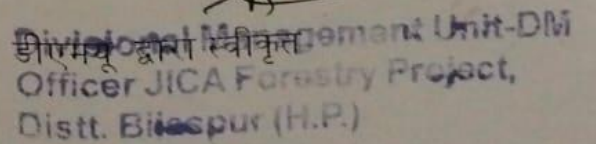 Divisional Management Unit-DM
डीएमयू द्वारा स्वीकृत
Officer JICA Forestry Project,
Distt. Bilaspur (H.P.)